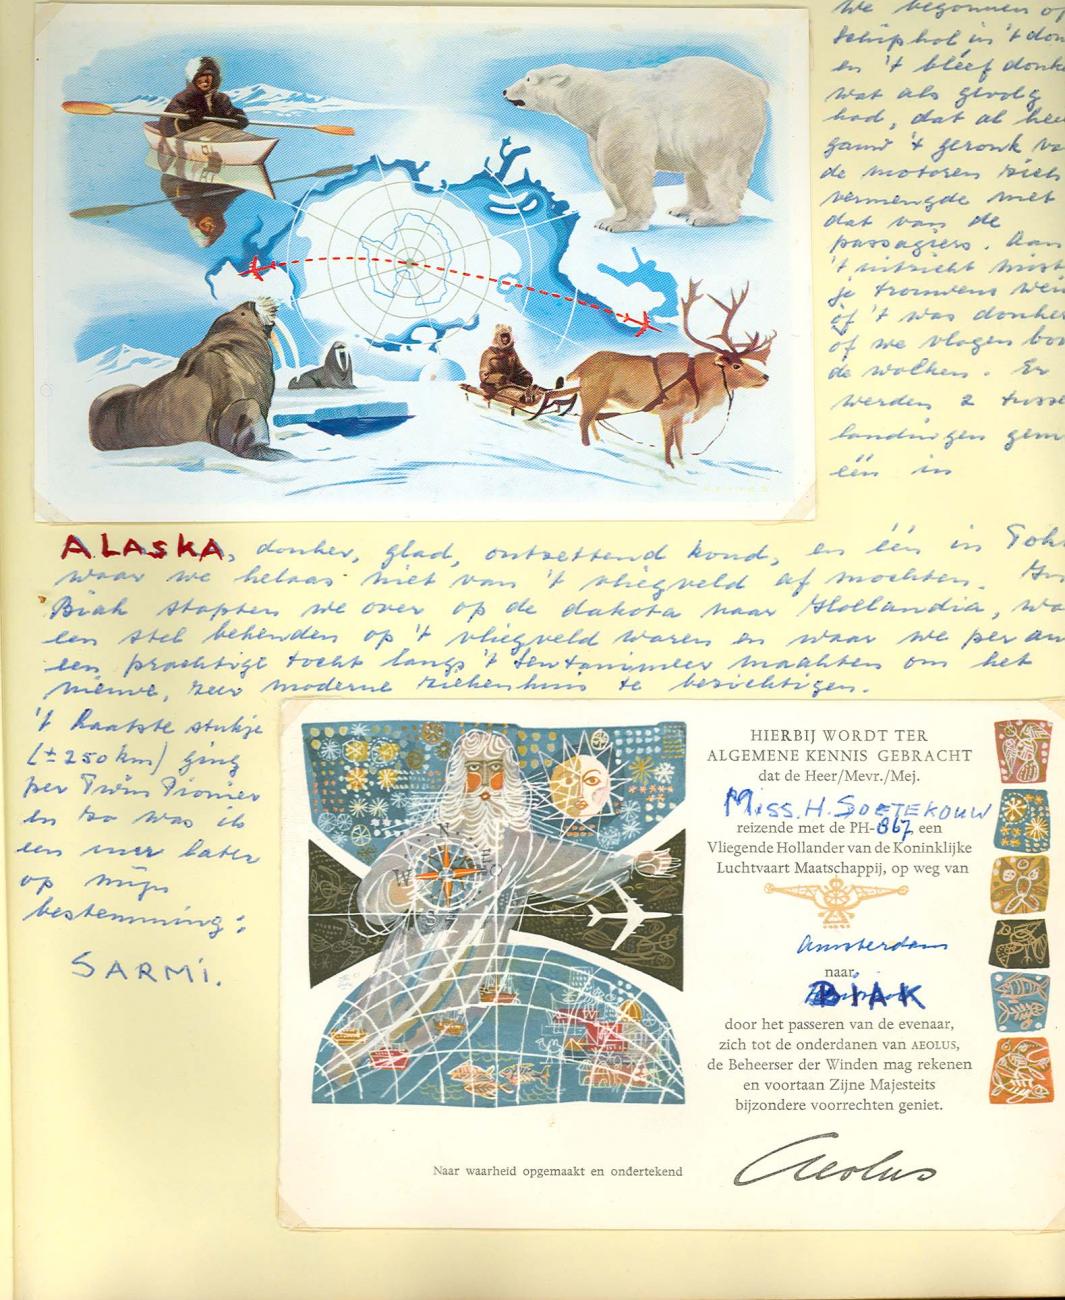 We begonnen op
Schiphol in 't don
en 't bleef donke
wat als gevolg
had, dat al hee
gauw 't geronk va
de motoren zich
vermengde met
dat van de
passagiers. Aan
't uitzicht mist
je trouwens wei
òf 't was donker
of we vlogen bov
de wolken. Er
werden 2 tusse
landingen gem
één in
ALASKA, donker, glad, ontzettend koud, en één in Tok
waar we helaas niet van 't vliegveld af mochten. In
Biak stapten we over op de dakota naar Hollandia, wa
een stel bekenden op 't vliegveld waren en waar we per au
een prachtige tocht langs 't Sentanimeer maakten om het
nieuwe, zeer moderne ziekenhuis te bezichtigen.
't Laatste stukje
(± 250 km) ging
per Twin Pionier
en zo was ik
een uur later
op mijn
bestemming:
SARMI.
HIERBIJ WORDT TER
ALGEMENE KENNIS GEBRACHT
dat de Heer/Mevr./Mej.
Miss. H. SOETEKOUW
reizende met de PH-867, een
Vliegende Hollander van de Koninklijke
Luchtvaart Maatschappij, op weg van
Amsterdam
naar
BIAK
door het passeren van de evenaar,
zich tot de onderdanen van AEOLUS,
de Beheerser der Winden mag rekenen
en voortaan Zijne Majesteits
bijzondere voorrechten geniet.
Naar waarheid opgemaakt en ondertekend
Aeolus
N
W
E
O
S
Z